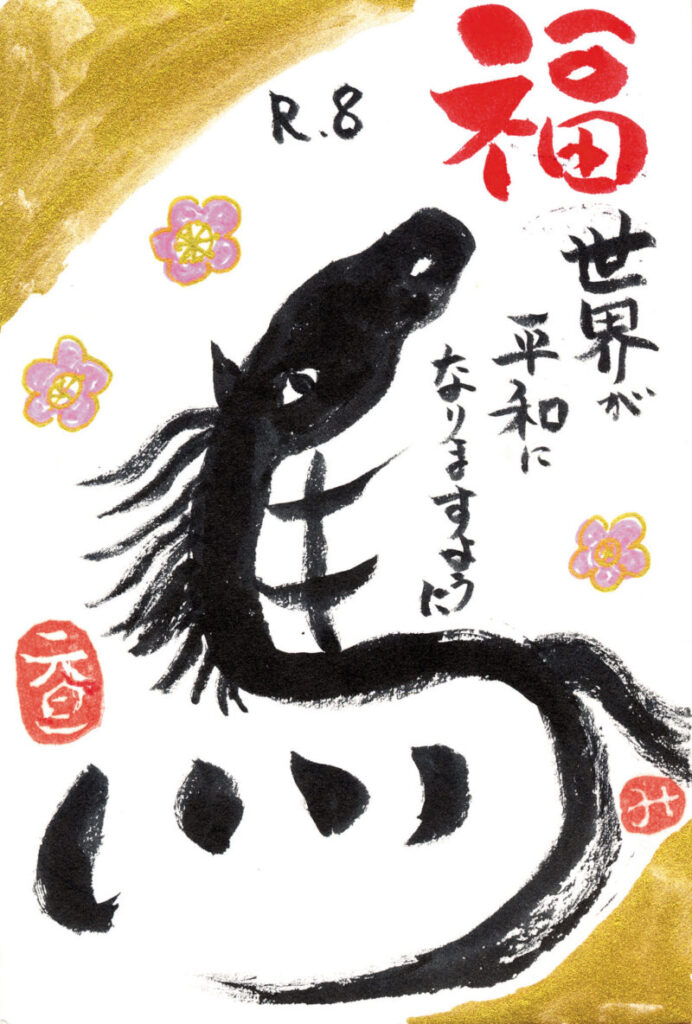 福
R.8
世界が
平和に
なりますように
馬
元旦
み